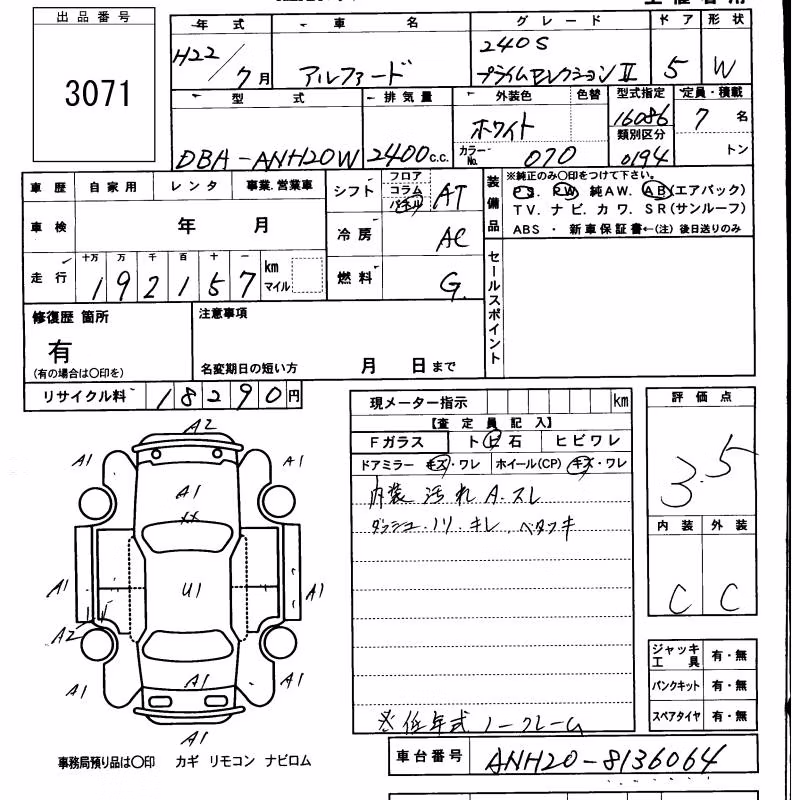 出品番号
3071
年式 車名 グレード ドア 形状
H22/7月 アルファード 240S プライムセレクションII 5 W
型式 排気量 外装色 色替 型式指定 定員・積載
DBA-ANH20W 2400c.c. ホワイト 16086 7名
カラーNo. 070 類別区分 0194 トン
車歴 自家用 レンタ 事業.営業車
シフト フロア コラム パネル AT
車検 年 月
冷房 AC
走行 十万 万 千 百 十 一 km マイル
192157
燃料 G.
装備品
※純正のみ〇印をつけて下さい。
PS. PW 純AW. AB(エアバック)
TV. ナビ. カワ. SR(サンルーフ)
ABS ・ 新車保証書←(注) 後日送りのみ
セールスポイント
修復歴 箇所
有
(有の場合は〇印を)
注意事項
名変期日の短い方 月 日まで
リサイクル料 18290円
現メーター指示 km
【査定員記入】
Fガラス トビ石 ヒビワレ
ドアミラー キズ・ワレ ホイール(CP) キズ・ワレ
内装 汚れ A.スレ
ダッシュ.ノリ.キレ.ベタツキ
※低年式 ノークレーム
評価点
3.5
内装 外装
C C
ジャッキ工具 有・無
パンクキット 有・無
スペアタイヤ 有・無
A2
A1 A1
A1
XX
U1
A1 A1
A2
A1 A1 A1
A1
事務局預り品は〇印 カギ リモコン ナビロム
車台番号 ANH20-8136064